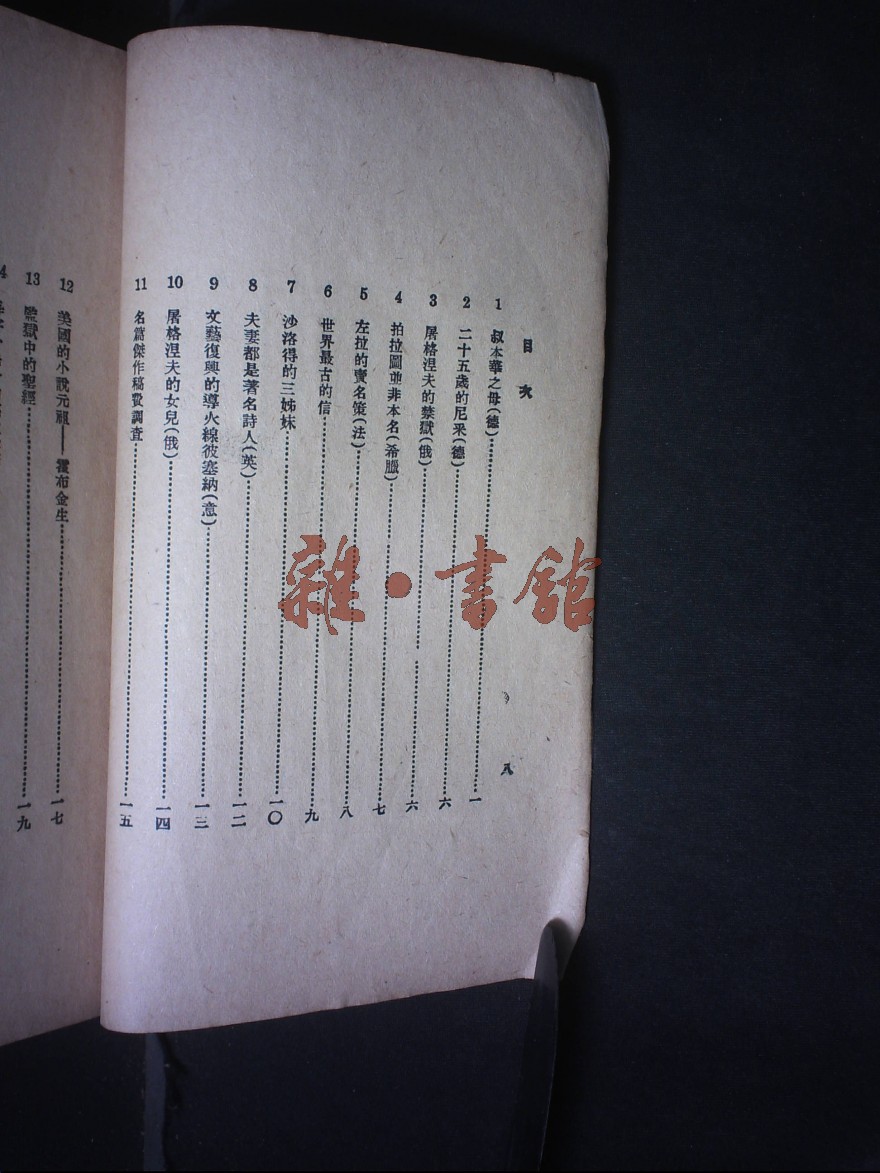 目次
八
1 叔本華之母(德)………一
2 二十五歲的尼采(德)………六
3 屠格涅夫的禁獄(俄)………六
4 拍拉圖並非本名(希臘)………七
5 左拉的賣名策(法)………八
6 世界最古的信………九
7 沙洛得的三姊妹………一〇
8 夫妻都是著名詩人(英)………一二
9 文藝復興的導火線彼塞納(意)………一三
10 屠格涅夫的女兒(俄)………一四
11 名篇傑作稿費調查………一五
12 美國的小說元祖——霍布金生………一七
13 監獄中的聖經………一九
雜·書館